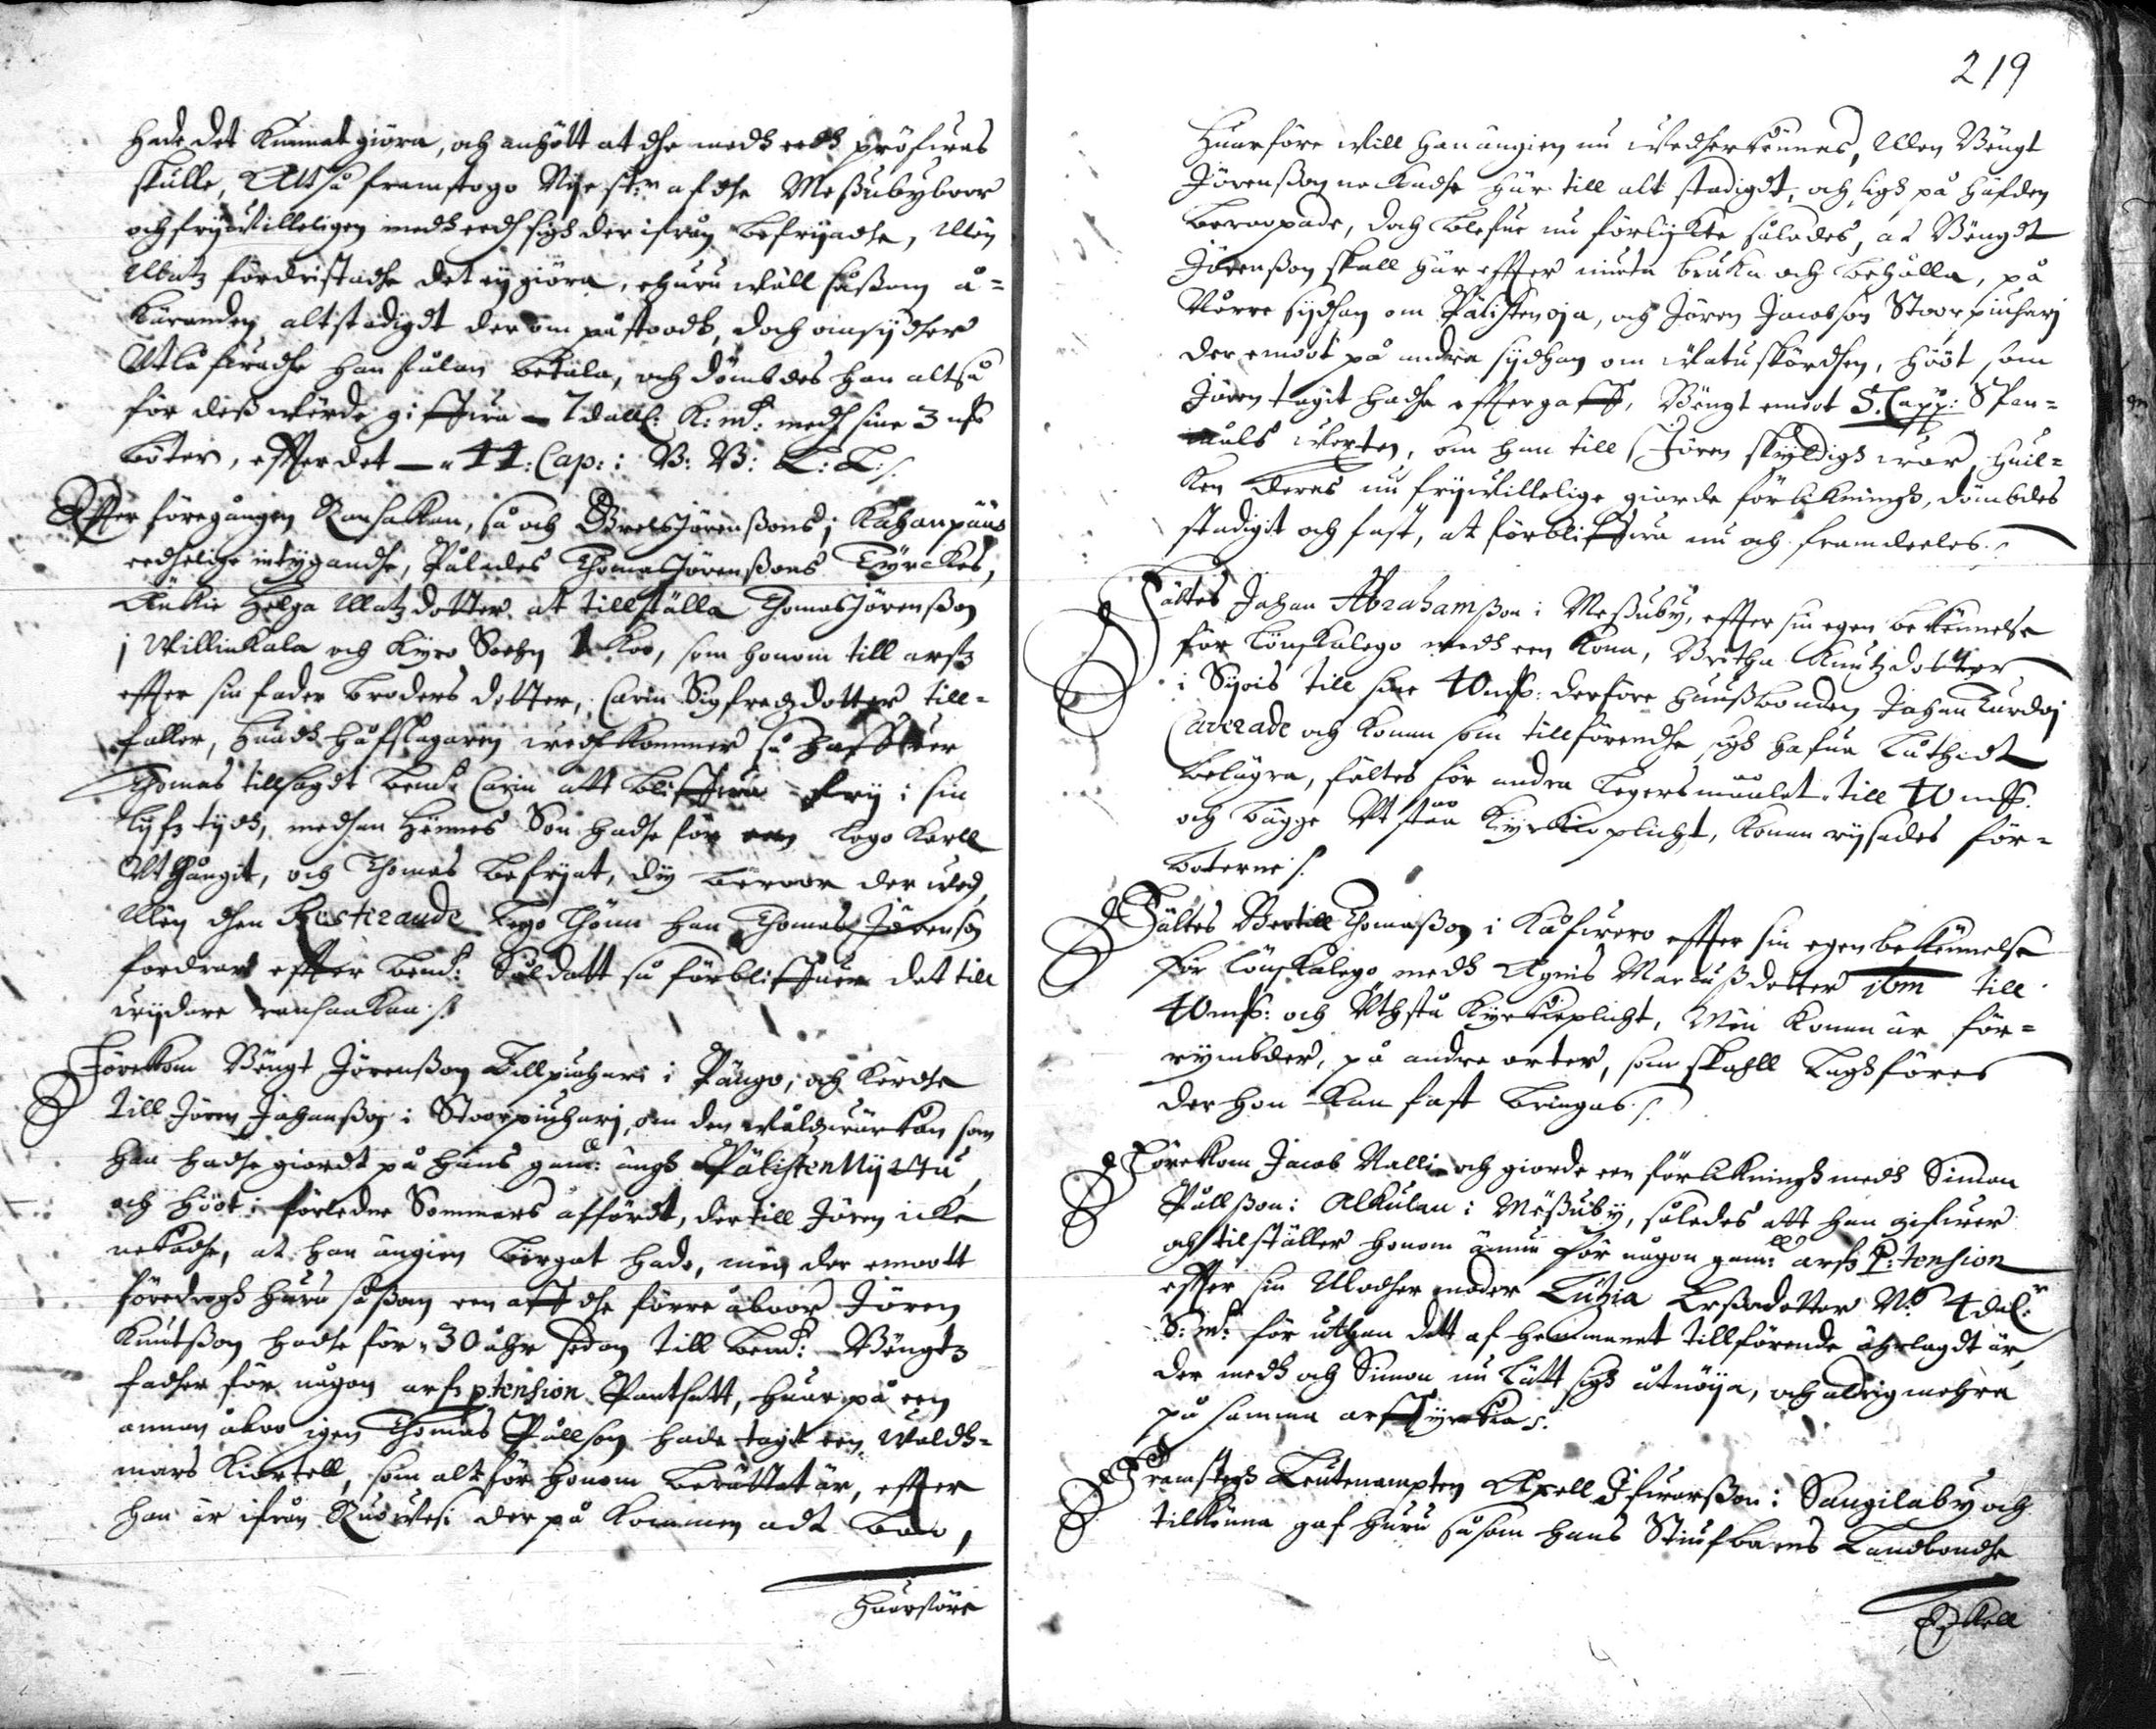 hade det kunnat giöra, och anhölt at dhe medh eedh pröfwas
skulle, Altså framstego Nije st:n af dhe Meßubyboor
och frijwilleligen medh eedh sigh der ifrån befryadhe, Men
Matz fördristadhe det ey giöra, ehuru wäll såßom å-
käranden altstadigdt der om påstoodh, doch omsijdher
Uthlåfwadhe han fålan betala, och dömbdes han altså
för dess wärde giffwa - 7 dall: K:mt: medh sine 3 mk
böter, effter det - 44: Cap: B: B: L: L:/.
Effter föregången Ransakan, så och Brels Jörenßons i Kahanpää
eedhelige intygandhe, Pålades Thomas Jörenßons Tyrckes,
Änkie Helga Matzdotter at tillställa Thomas Jörenßon
i Willinkala och Kyro Sochn 1 Koo, som honom till arfz
effter sin fader broders dotter, Carin Sigfredzdotter till-
faller, hwadh håfslagaren wedhkommer så haffwer
Thomas tillsagdt bem:te Carin att bliffwa frij i sin
lijfz tijdh, medhan hennes Son hadhe för een lego Karll
Uthgångit, och Thomas befryat, dy beroor der wedh,
Men dhen Resterande lego Lönn han Thomas Jörenson
fordrar effter bem:te Soldatt så förbliffwer det till
wijdare ransaakan /.
Förekom Bengt Jörenßon Lillpiuhari i Pängo, och kerdhe
till Jören Johanßon i Stoorpiuhari, om den wåldzwärkan som
han hadhe giordt på hans gam: ängh Pälisten Nijttu,
och Hööt i förledne Sommars afffördt, der till Jören icke
nekadhe, at han ängien bärgat hade, men der emoott
föredrogh huru såßom een aff dhe förre åboor Jören
Knutßon hadhe för 30 åhr sedan till bem:te Bengtz
fadher för någon arfz ptension Pantsatt, huarpå een
annan åboo igen Thomas Pållson hade tagit een Waldh-
mars Kiortell, som alt för honom berättat är, effter
han är ifrån Ruowesi der på kommen adt boo,
Huarföre
219
Huarföre will han ängien nu wedherkännas, Men Bengt
Jörenßon nekadhe här till alt stadigdt, och sigh på häfden
beroopade, doch blefue nu förlijkte sålades, at Bengdt
Jörenßon skall här effter niuta bruka och behålla, på
Norre sijdhan om Pälistenoja, och Jören Jacobson Stoorpiuharj
der emoot på andra sijdhan om watuskördhen, Hööt som
Jören tagit hadhe effterga ff, Bengt emoot 5. Capp: Span-
måls werten, om han till Jören skyldigh war, Huil-
ken Deras nu frijwillelige giorde förlikningh, dömbdes
stadigt och fast, at förbliffwa nu och framdeeles./
Fältes Johan Abrahamßon i Meßuby, effter sin egen bekennelse
för Lönskalego medh een Kona, Britha Knutzdotter
i Syois till sine 40 mk: derföre Huußbonden Johan Turdoj
Caverade och Konan som tillförendhe sigh hafue Låthidt
belägra, fältes för andra Legersmåålet till 40 mk.
och bägge Uthstaa Kyrkioplicht, Konan rysades för-
boterne /.
Fältes Bertill Thomaßon i Kåfwero effter sin egen bekännelse
för Lönskalego medh Agnis Marcußdotter ibm till
40 mk: och Uthstå Kyrkieplicht, Men Konan är för-
rymbder, på andra orter, som skahll Laghföres
der hon kan fast bringas /.
Förekom Jacob Nalli och giorde een förlikningh medh Simon
Pållßon i Alkulan i Meßuby, således att han gifwer
och tilställer honom ännu för någon gam: arfz P:tension
effter sin Modher moder Luhzia Erßdotter N:o 4 dal:r
S:mt: för uthan dett af hemmanet tillförende ährlagdt är,
der medh och Simon nu Lätt sigh åtnöya, och aldrig mehra
på samma arff yrkia /.
Framstegh Leutenampten Axell Ifwarßon i Sangilaby och
tilkänna gaf huru såsom hans Stiufbarns Landbondhe
Eskell